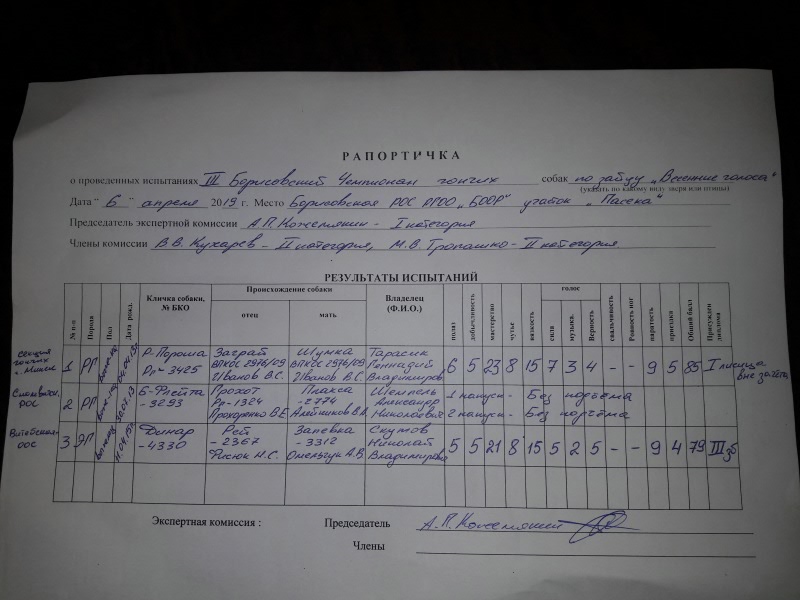 РАПОРТИЧКА
о проведенных испытаниях III Борисовский Чемпионат гончих собак по зайцу „Весенние голоса"
(указать по какому виду зверя или птицы)
Дата " 6 " апреля 2019 г. Место Борисовская РОС РГОО „БООР" участок „Пасека"
Председатель экспертной комиссии А.П. Кожемякин - I категория
Члены комиссии В.В. Кухарев - II категория, М.В. Тропашко - II категория
РЕЗУЛЬТАТЫ ИСПЫТАНИЙ
№ п.п Порода Пол Дата рожд. Кличка собаки, № БКО Происхождение собаки отец мать Владелец (Ф.И.О.) полаз добычливость мастерство чутье вязкость голос сила музыка. Верность свальчивость Ровность ног паратость приездка Общий балл Присужден диплома
Секция гончих г. Минск 1 РГ Р-Пороша Рг 3425 Заграй ВПКОС 2976/09 Иванов В.С. Шумка ВПКОС 2976/09 Иванов В.С. Тарасик Геннадий Владимиров. 6 5 23 8 15 7 3 4 - - 9 5 85 I лисица вне зачёта
РОС 2 РГ Б-Флейта - 3293 Прохот Рг-1324 Прохоренко В.Е. Плакса - 2774 Александр Николаевич 1 напуск - Без подъёма 2 напуск - Без подъёма
Витебская ООС 3 Динар - 4330 Рей - 2367 Фисюк Н.С. Запевка - 3312 Омельчук А.В. Скутов Николай Владимирови 5 5 21 8 15 5 2 5 - - 9 4 79 III
Экспертная комиссия : Председатель А.П. Кожемякин
Члены